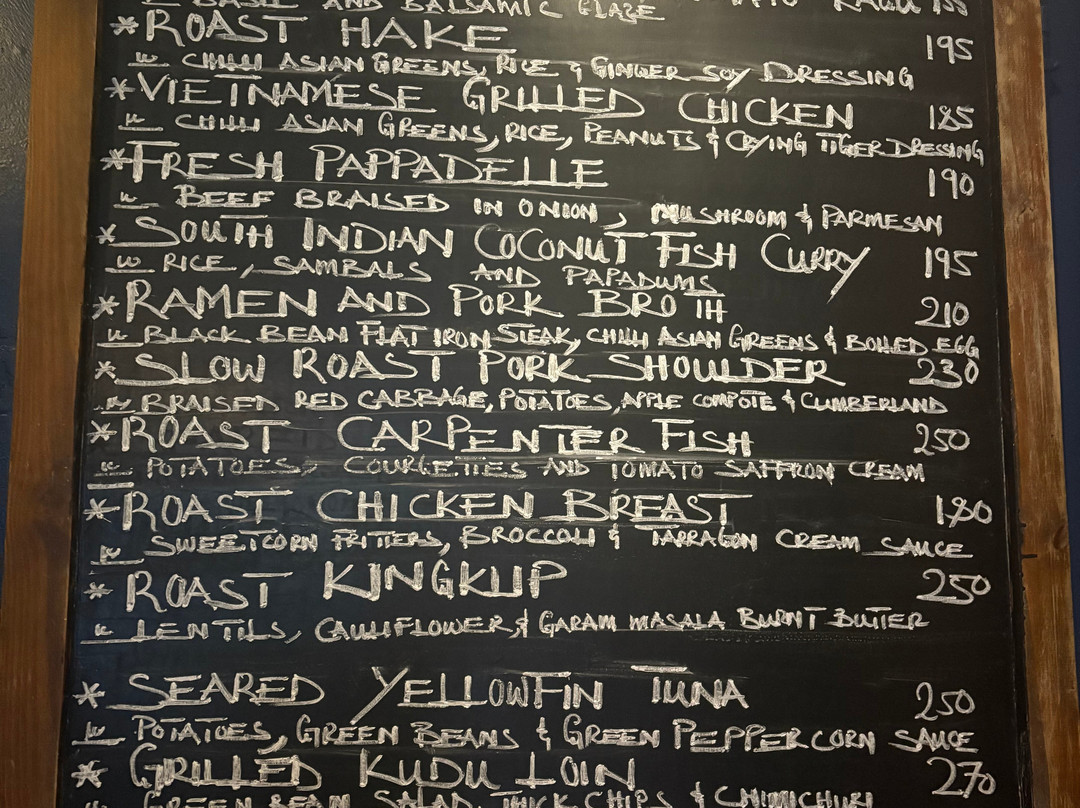 W BASIL AND BALSAMIC GLAZE
*ROAST HAKE 195
W CHILLI ASIAN GREENS, RICE & GINGER SOY DRESSING
*VIETNAMESE GRILLED CHICKEN 185
W CHILLI ASIAN GREENS, RICE, PEANUTS & CRYING TIGER DRESSING
*FRESH PAPPADELLE 190
W BEEF BRAISED IN ONION, MUSHROOM & PARMESAN
*SOUTH INDIAN COCONUT FISH CURRY 195
W RICE, SAMBALS AND PAPADUMS
*RAMEN AND PORK BROTH 210
W BLACK BEAN FLAT IRON STEAK, CHILLI ASIAN GREENS & BOILED EGG
*SLOW ROAST PORK SHOULDER 230
W BRAISED RED CABBAGE, POTATOES, APPLE COMPOTE & CUMBERLAND
*ROAST CARPENTER FISH 250
W POTATOES, COURGETTES AND TOMATO SAFFRON CREAM
*ROAST CHICKEN BREAST 180
W SWEETCORN FRITTERS, BROCCOLI & TARRAGON CREAM SAUCE
*ROAST KINGKLIP 250
W LENTILS, CAULIFLOWER, & GARAM MASALA BURNT BUTTER
*SEARED YELLOWFIN TUNA 250
W POTATOES, GREEN BEANS & GREEN PEPPERCORN SAUCE
*GRILLED KUDU LOIN 270
W GREEN BEAN SALAD, THICK CHIPS & CHIMICHURI